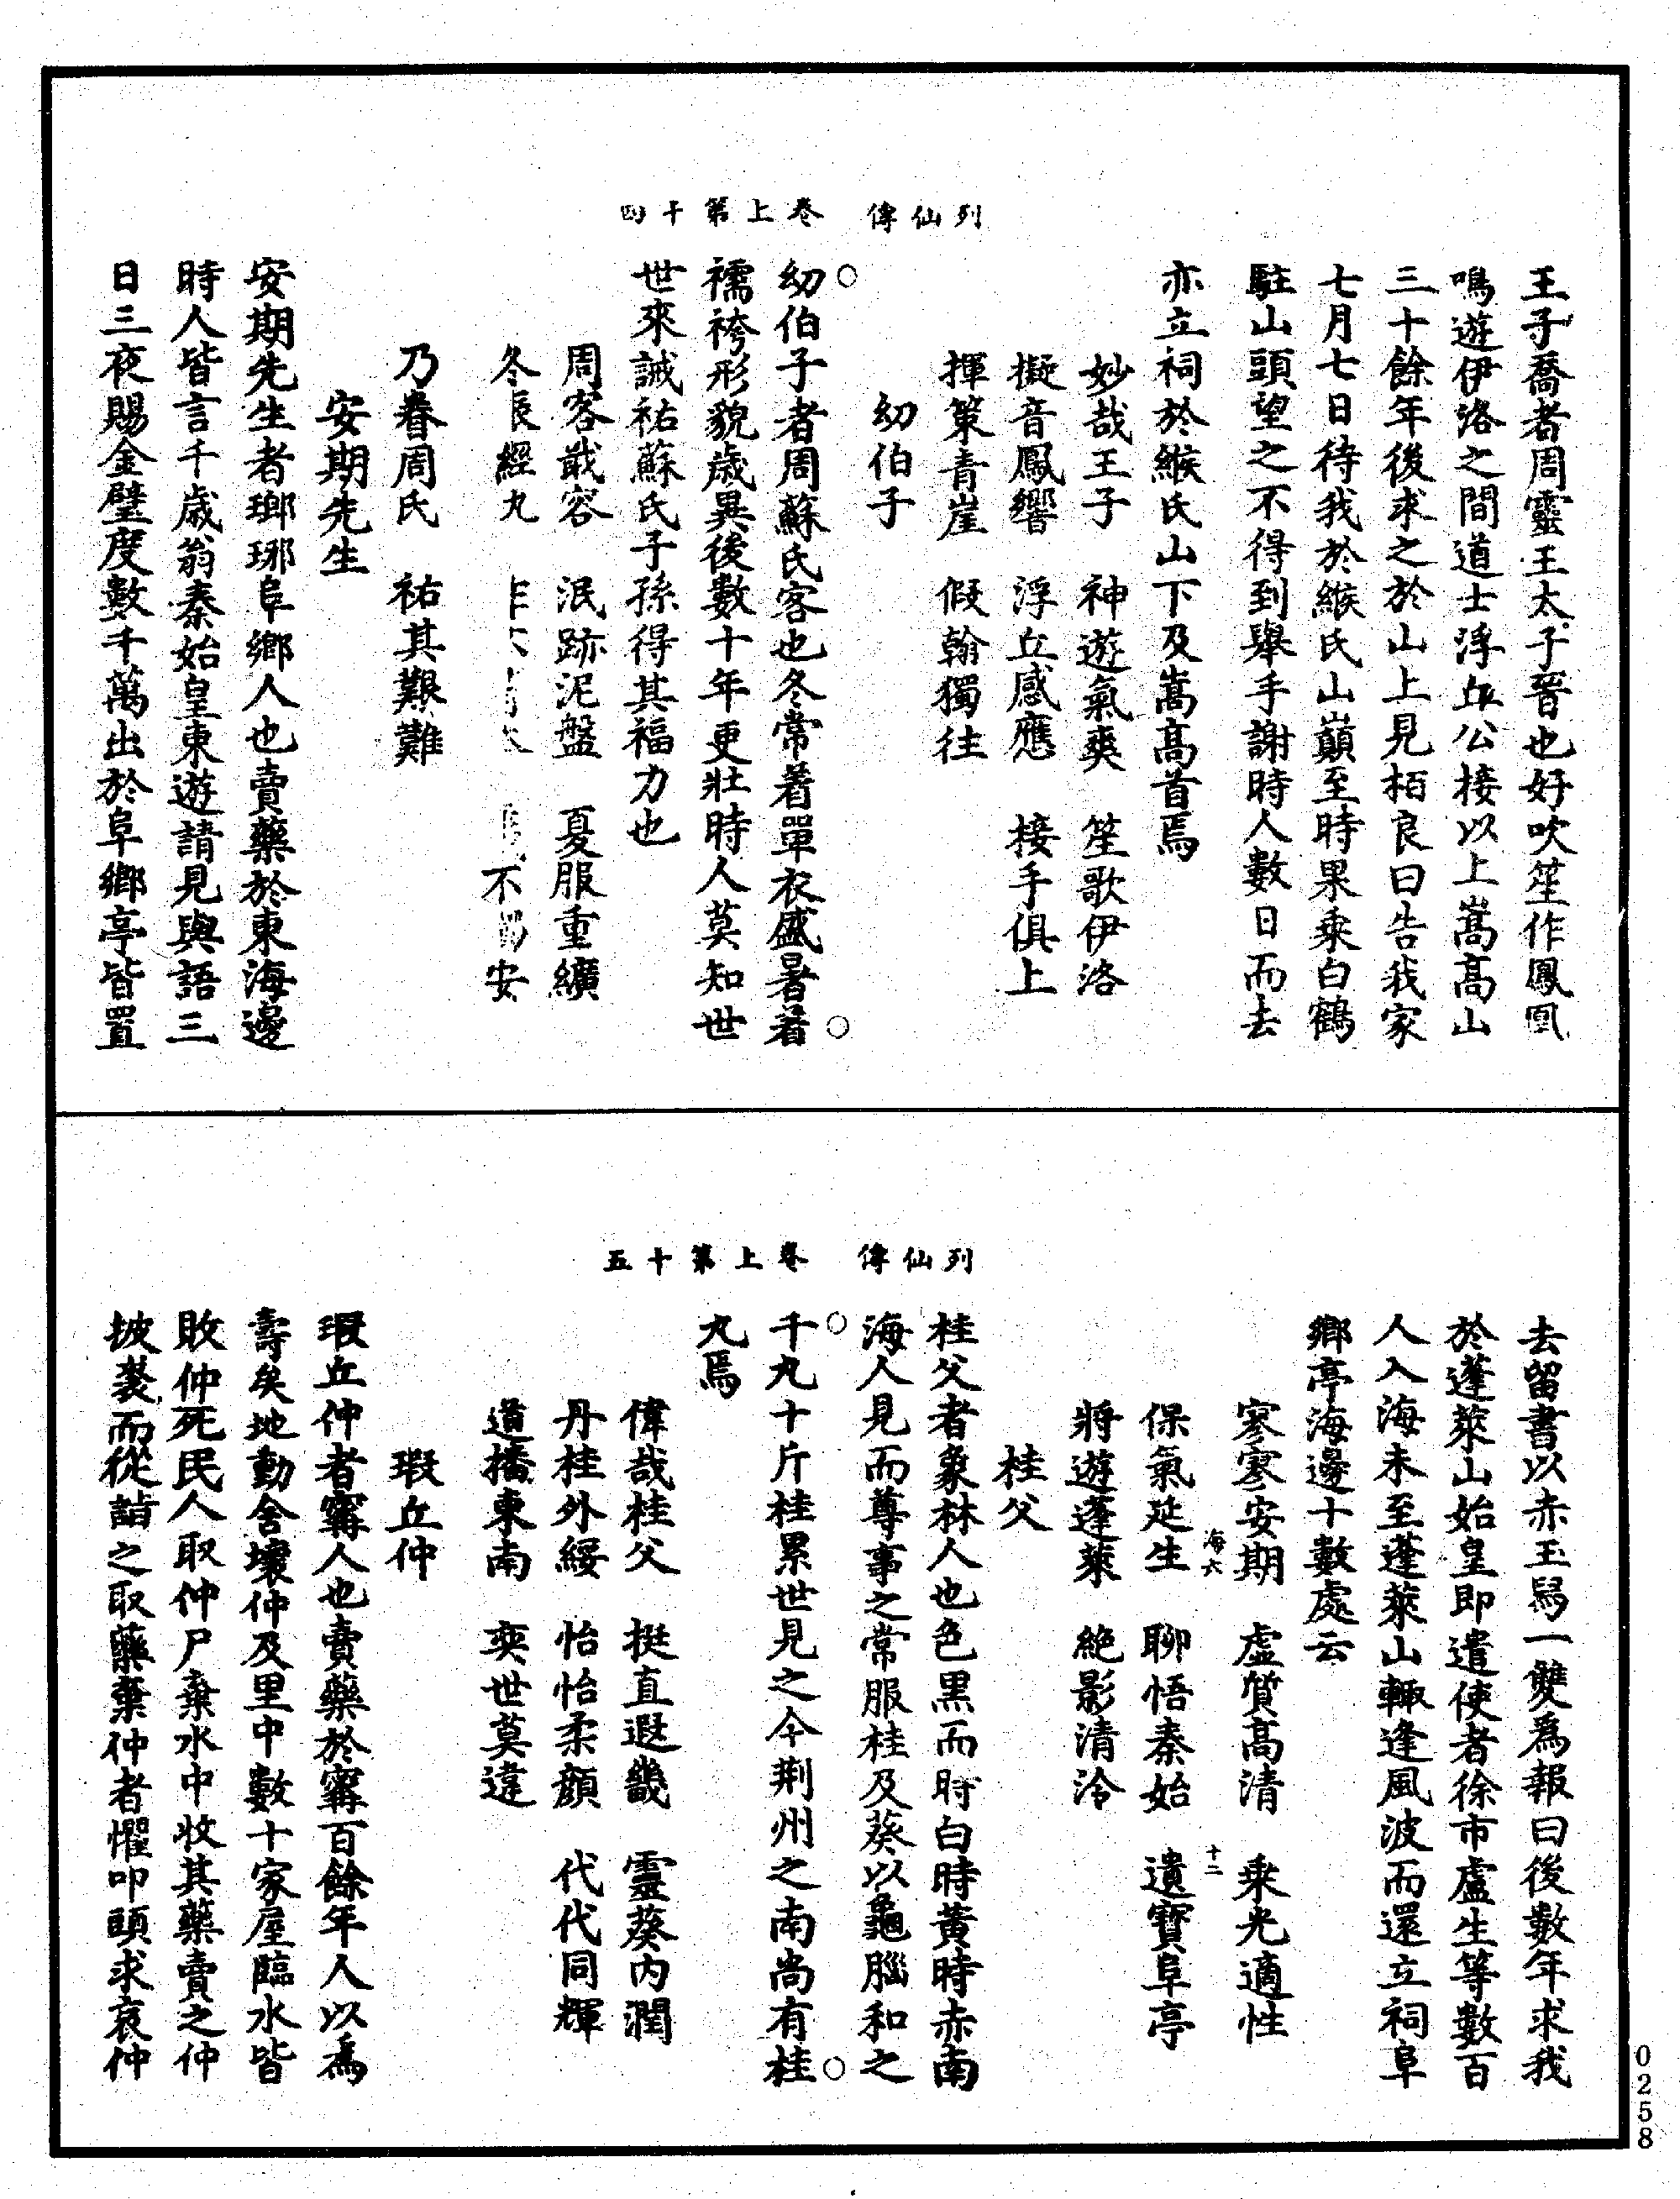 王子喬者周靈王太子晉也好吹笙作鳳凰
鳴遊伊洛之間道士浮丘公接以上嵩高山
三十餘年後求之於山上見栢良曰告我家
七月七日待我於緱氏山巔至時果乘白鶴
駐山頭望之不得到舉手謝時人數日而去
亦立祠於緱氏山下及嵩高首焉
妙哉王子　神遊氣爽　笙歌伊洛
擬音鳳響　浮丘感應　接手俱上
揮策青崖　假翰獨往
幼伯子
列仙傳　卷上第十四
幼伯子者周蘇氏客也冬常着單衣盛暑着
襦袴形貌歲異後數十年更壯時人莫知世
世來誡祐蘇氏子孫得其福力也
周客戢容　泯跡泥盤　夏服重纊
冬　　　　　　　　　　不　安
乃眷周氏　祐其艱難
安期先生
安期先生者瑯琊阜鄉人也賣藥於東海邊
時人皆言千歲翁秦始皇東遊請見與語三
日三夜賜金璧度數千萬出於阜鄉亭皆置
去留書以赤玉舄一雙爲報曰後數年求我
於蓬萊山始皇即遣使者徐市盧生等數百
人入海未至蓬萊山輒逢風波而還立祠阜
鄉亭海邊十數處云
寥寥安期　虛質高清　乘光適性
海六　十二
保氣延生　聊悟秦始　遺寶阜亭
將遊蓬萊　絕影清泠
桂父
桂父者象林人也色黑而時白時黃時赤南
海人見而尊事之常服桂及葵以龜腦和之
列仙傳　卷上第十五
千丸十斤桂累世見之今荊州之南尚有桂
丸焉
偉哉桂父　挺直遐畿　靈葵內潤
丹桂外綏　怡怡柔顏　代代同輝
道播東南　奕世莫違
瑕丘仲
瑕丘仲者甯人也賣藥於甯百餘年人以爲
壽矣地動舍壞仲及里中數十家屋臨水皆
敗仲死民人取仲尸棄水中收其藥賣之仲
披裘而從詣之取藥棄仲者懼叩頭求哀仲
0258